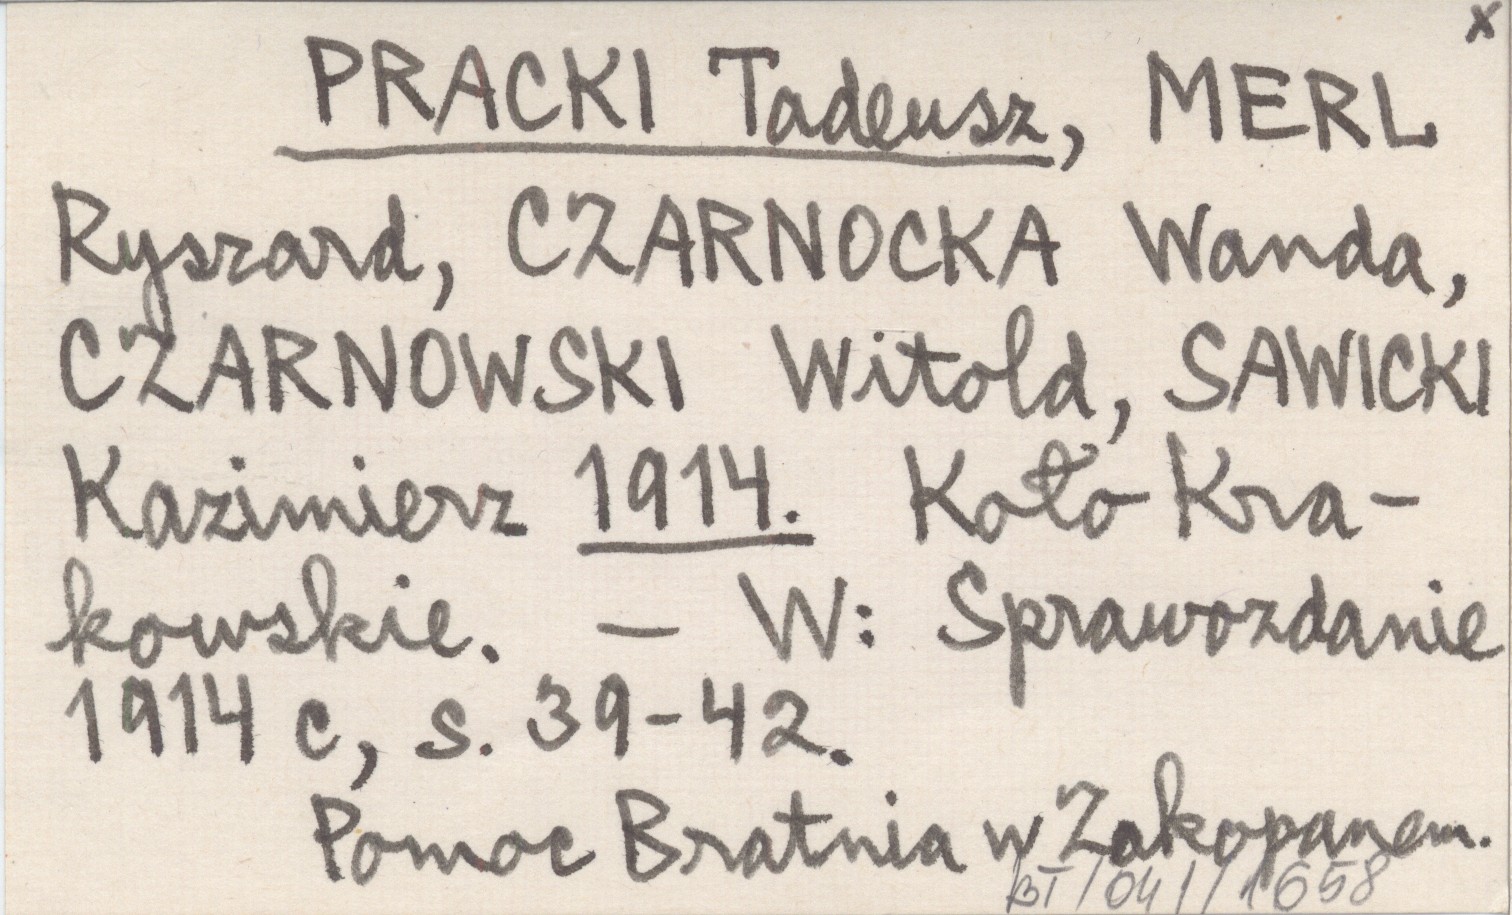 x
PRACKI Tadeusz, MERL
Ryszard, CZARNOCKA Wanda,
CZARNOWSKI Witold, SAWICKI
Kazimierz 1914. Koło Kra-
kowskie. — W: Sprawozdanie
1914 c, s. 39-42.
Pomoc Bratnia w Zakopanem.
BT/041/1658